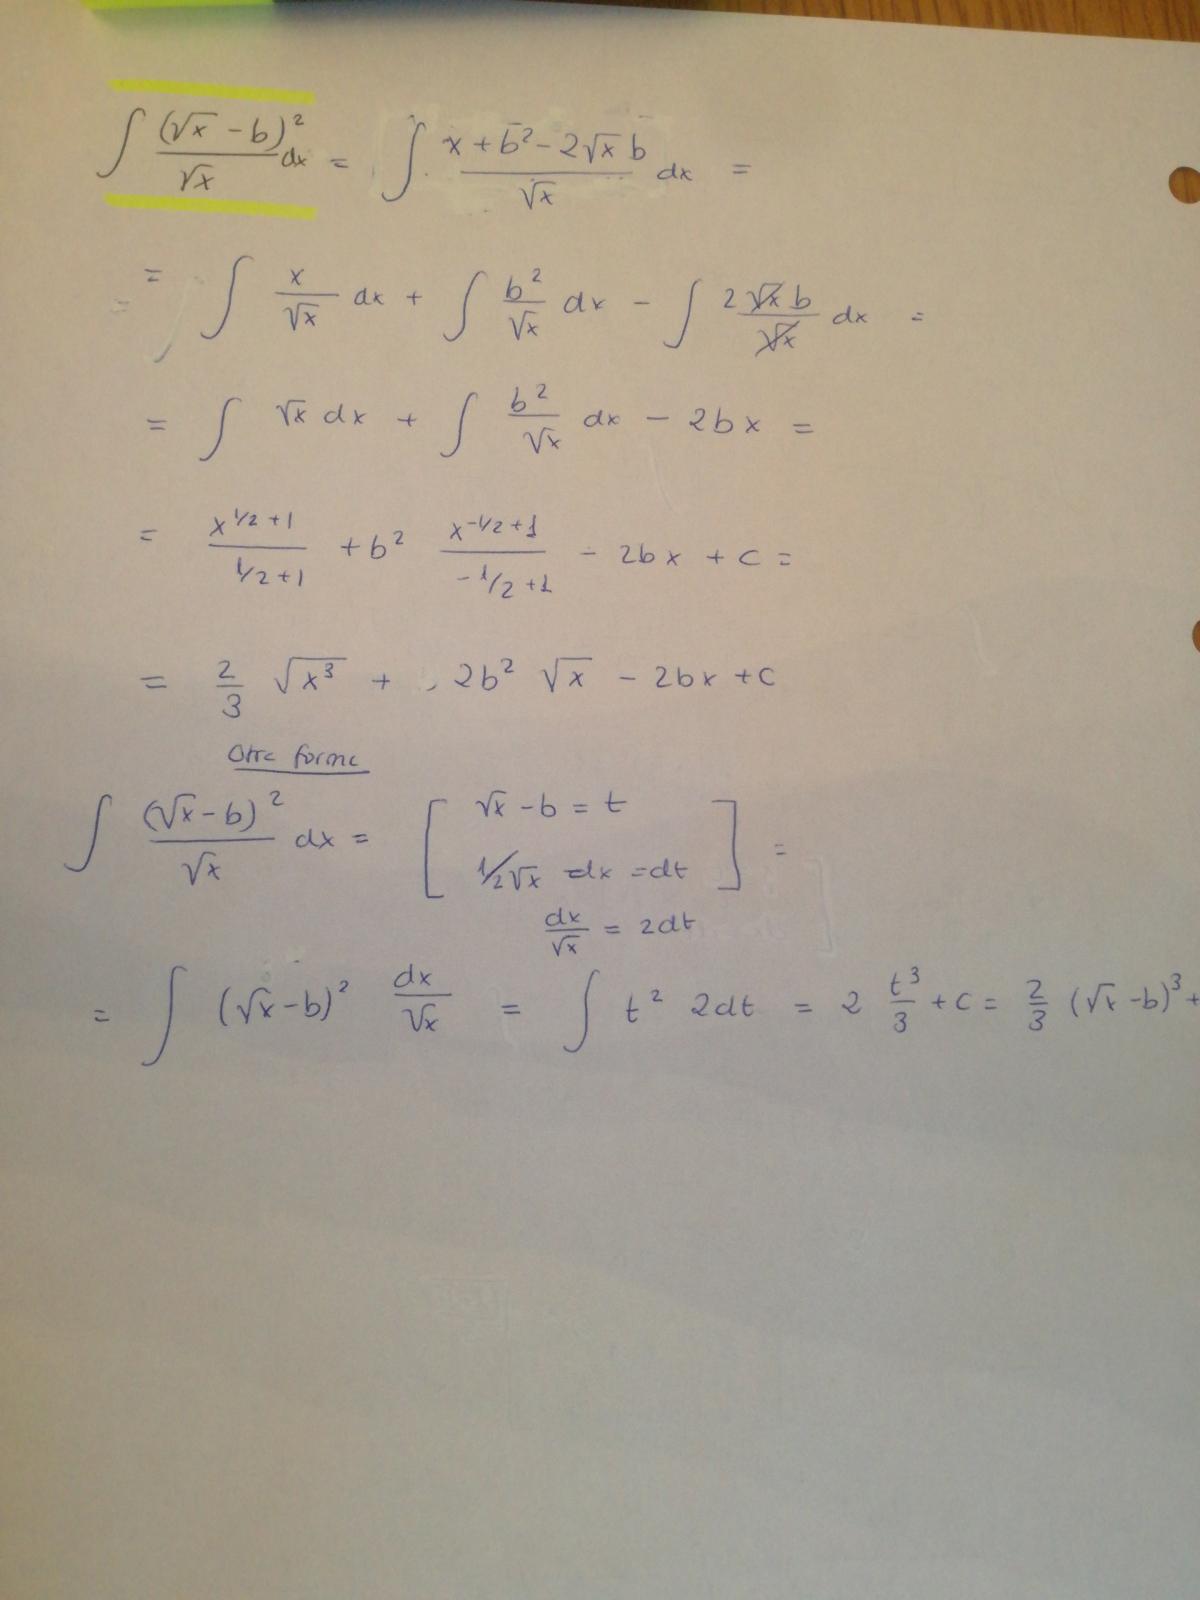 ∫ (√x - b)² / √x dx = ∫ x + b² - 2√x b / √x dx =
= ∫ x/√x dx + ∫ b²/√x dx - ∫ 2 √x b / √x dx =
= ∫ √x dx + ∫ b²/√x dx - 2bx =
= x^(1/2+1) / (1/2+1) + b² x^(-1/2+1) / (-1/2+1) - 2bx + c =
= 2/3 √x³ + 2b² √x - 2bx + c
Otra forma
∫ (√x - b)² / √x dx = [ √x - b = t
1/2√x dx = dt ] =
dx/√x = 2dt
= ∫ (√x - b)² dx/√x = ∫ t² 2dt = 2 t³/3 + c = 2/3 (√x - b)³ +